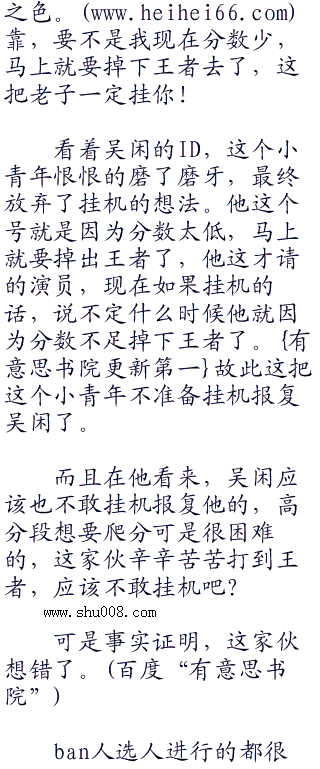 之色。(www.heihei66.com)
靠，要不是我现在分数少，
马上就要掉下王者去了，这
把老子一定挂你！
看着吴闲的ID，这个小
青年恨恨的磨了磨牙，最终
放弃了挂机的想法。他这个
号就是因为分数太低，马上
就要掉出王者了，他这才请
的演员，现在如果挂机的
话，说不定什么时候他就因
为分数不足掉下王者了。{有
意思书院更新第一}故此这把
这个小青年不准备挂机报复
吴闲了。
而且在他看来，吴闲应
该也不敢挂机报复他的，高
分段想要爬分可是很困难
的，这家伙辛辛苦苦打到王
者，应该不敢挂机吧？
www.shu008.com
可是事实证明，这家伙
想错了。(百度“有意思书
院”)
ban人选人进行的都很